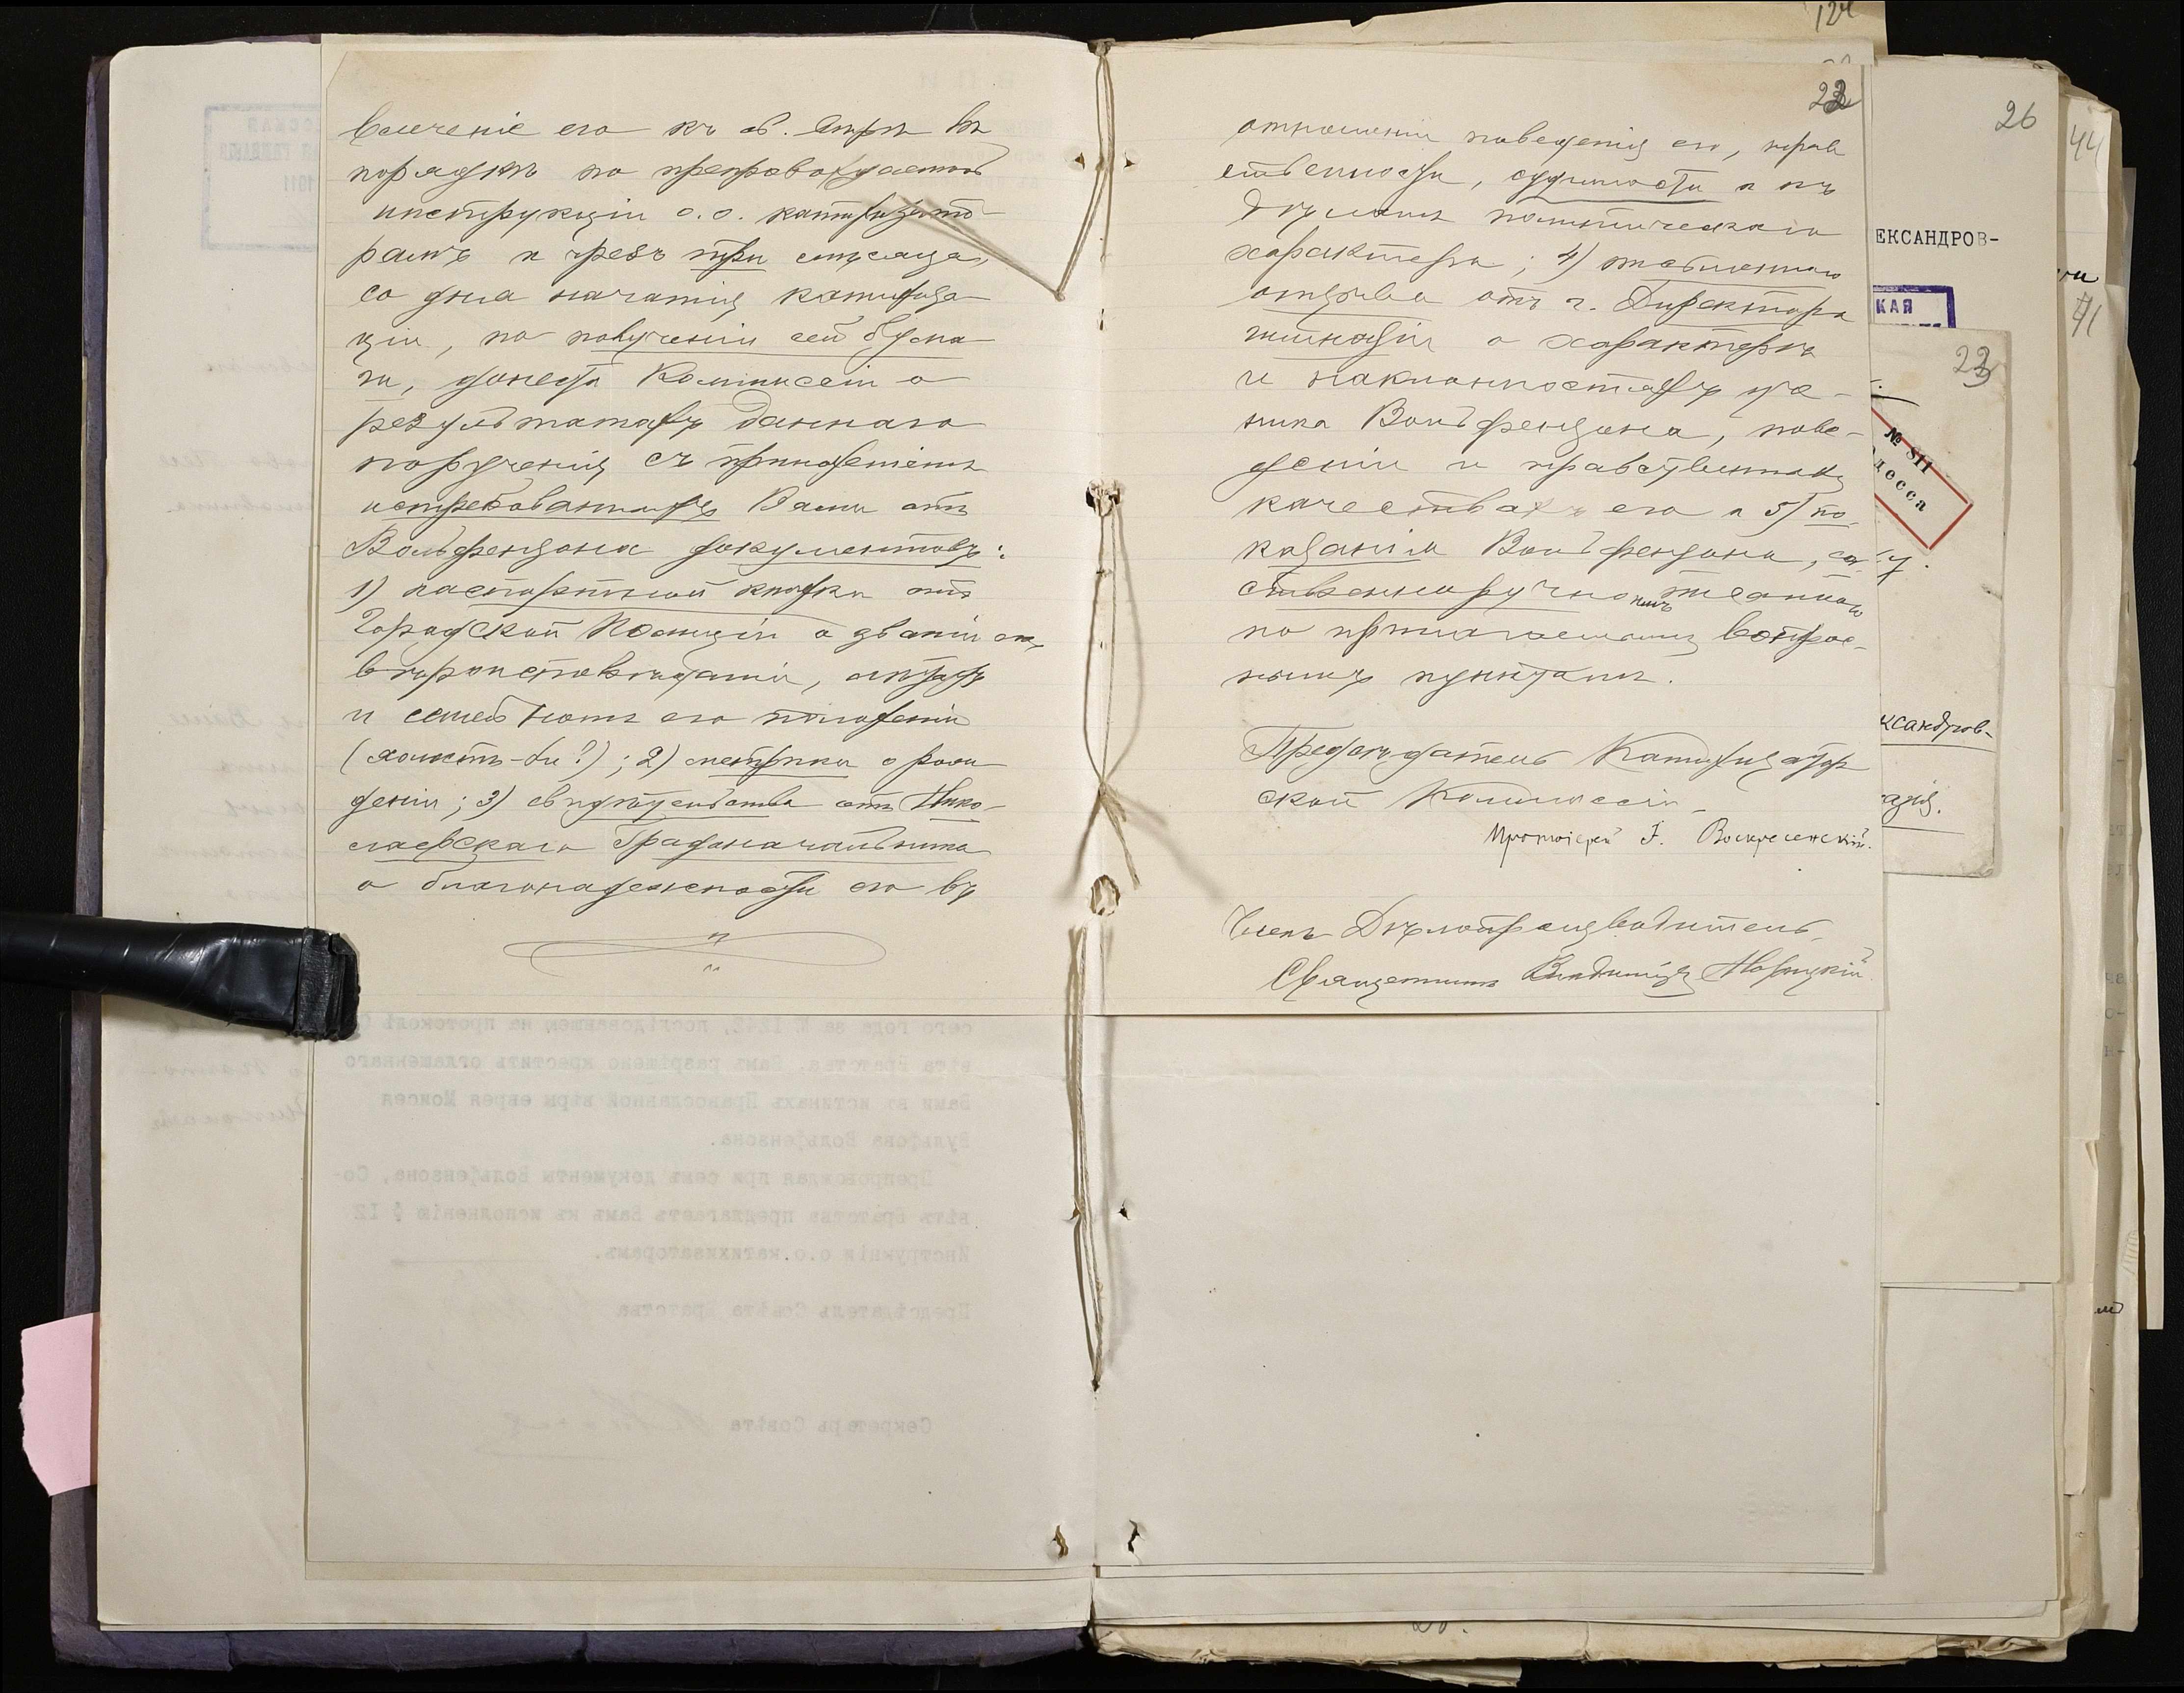 влеченіе его къ св. вѣрѣ въ
порядкѣ по препровождаемой
инструкціи о.о. катихизато-
рамъ и чрезъ три мѣсяца,
со дня начатія катихиза-
ціи, по полученіи сей бума-
ги, донести Коммиссіи о
результатахъ даннаго
порученія съ приложеніемъ
истребованныхъ Вами отъ
Вольфензона документовъ:
1) паспортной книжки отъ
Городской Полиціи о званіи его,
вѣроисповѣданіи, лѣтахъ
и семейномъ его положеніи
(холостъ-ли?); 2) метрики о рож-
деніи; 3) свидѣтельства отъ Нико-
лаевскаго Градоначальника
о благонадежности его въ
22
отношеніи поведенія его, нрав
ственности, судимости и къ
дѣламъ политическаго
характера; 4) письменнаго
отзыва отъ г. Директора
гимназіи о характерѣ
и наклонностяхъ уче-
ника Вольфензона, пове-
деніи и нравственныхъ
качествахъ его и 5) по-
казанія Вольфензона, соб-
ственноручно имъ писаннаго
по прилагаемымъ вопрос-
нымъ пунктамъ.
Предсѣдатель Катихизатор
ской Коммиссіи
Протоіерей І. Воскресенскій.
Членъ Дѣлопроизводитель,
Священникъ Владиміръ
124
26
44
41
ЕКСАНДРОВ-
КАЯ
23
№ 811
десса
ксандров-
сего года за № 1242, послѣдовавшею на протоколѣ Со
вѣта Братства, Вамъ разрѣшено крестить оглашеннаго
Вами въ истинахъ Православной вѣры еврея Моисея
Вульфова Вольфензона.
Препровождая при семъ документы Вольфензона, Со-
вѣтъ Братства предлагаетъ Вамъ къ исполненію § 12
Инструкціи о.о. катихизаторамъ.
Предсѣдатель Совѣта Братства
Секретарь Совѣта